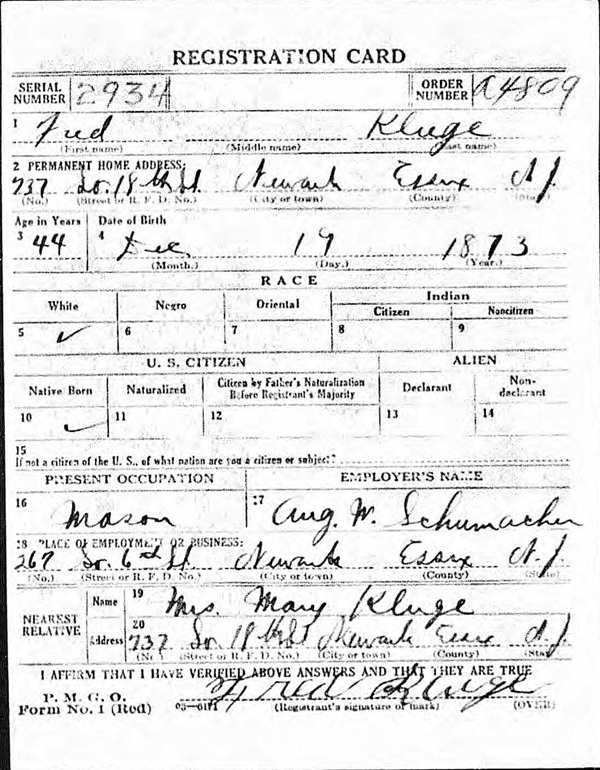 REGISTRATION CARD
SERIAL NUMBER 2934 ORDER NUMBER A4809
1 Fred Kluge
(First name) (Middle name) (Last name)
2 PERMANENT HOME ADDRESS:
737 So. 18th St Newark Essex N.J.
(No.) (Street or R. F. D. No.) (City or town) (County) (State)
Age in Years Date of Birth
3 44 4 Dec 19 1873
(Month.) (Day.) (Year.)
RACE
White Negro Oriental Indian
Citizen Noncitizen
5 ✓ 6 7 8 9
U. S. CITIZEN ALIEN
Native Born Naturalized Citizen by Father's Naturalization Before Registrant's Majority Declarant Non-declarant
10 ✓ 11 12 13 14
15
If not a citizen of the U. S., of what nation are you a citizen or subject?
PRESENT OCCUPATION EMPLOYER'S NAME
16 Mason 17 Aug. W. Schumacher
18 PLACE OF EMPLOYMENT OR BUSINESS:
267 So. 6th St Newark Essex N.J.
(No.) (Street or R. F. D. No.) (City or town) (County) (State)
NEAREST RELATIVE Name 19 Mrs. Mary Kluge
Address 20 737 So. 18th St Newark Essex N.J.
(No.) (Street or R. F. D. No.) (City or town) (County) (State)
I AFFIRM THAT I HAVE VERIFIED ABOVE ANSWERS AND THAT THEY ARE TRUE
P. M. G. O.
Form No. 1 (Red) Fred Kluge
(Registrant's signature or mark) (OVER)